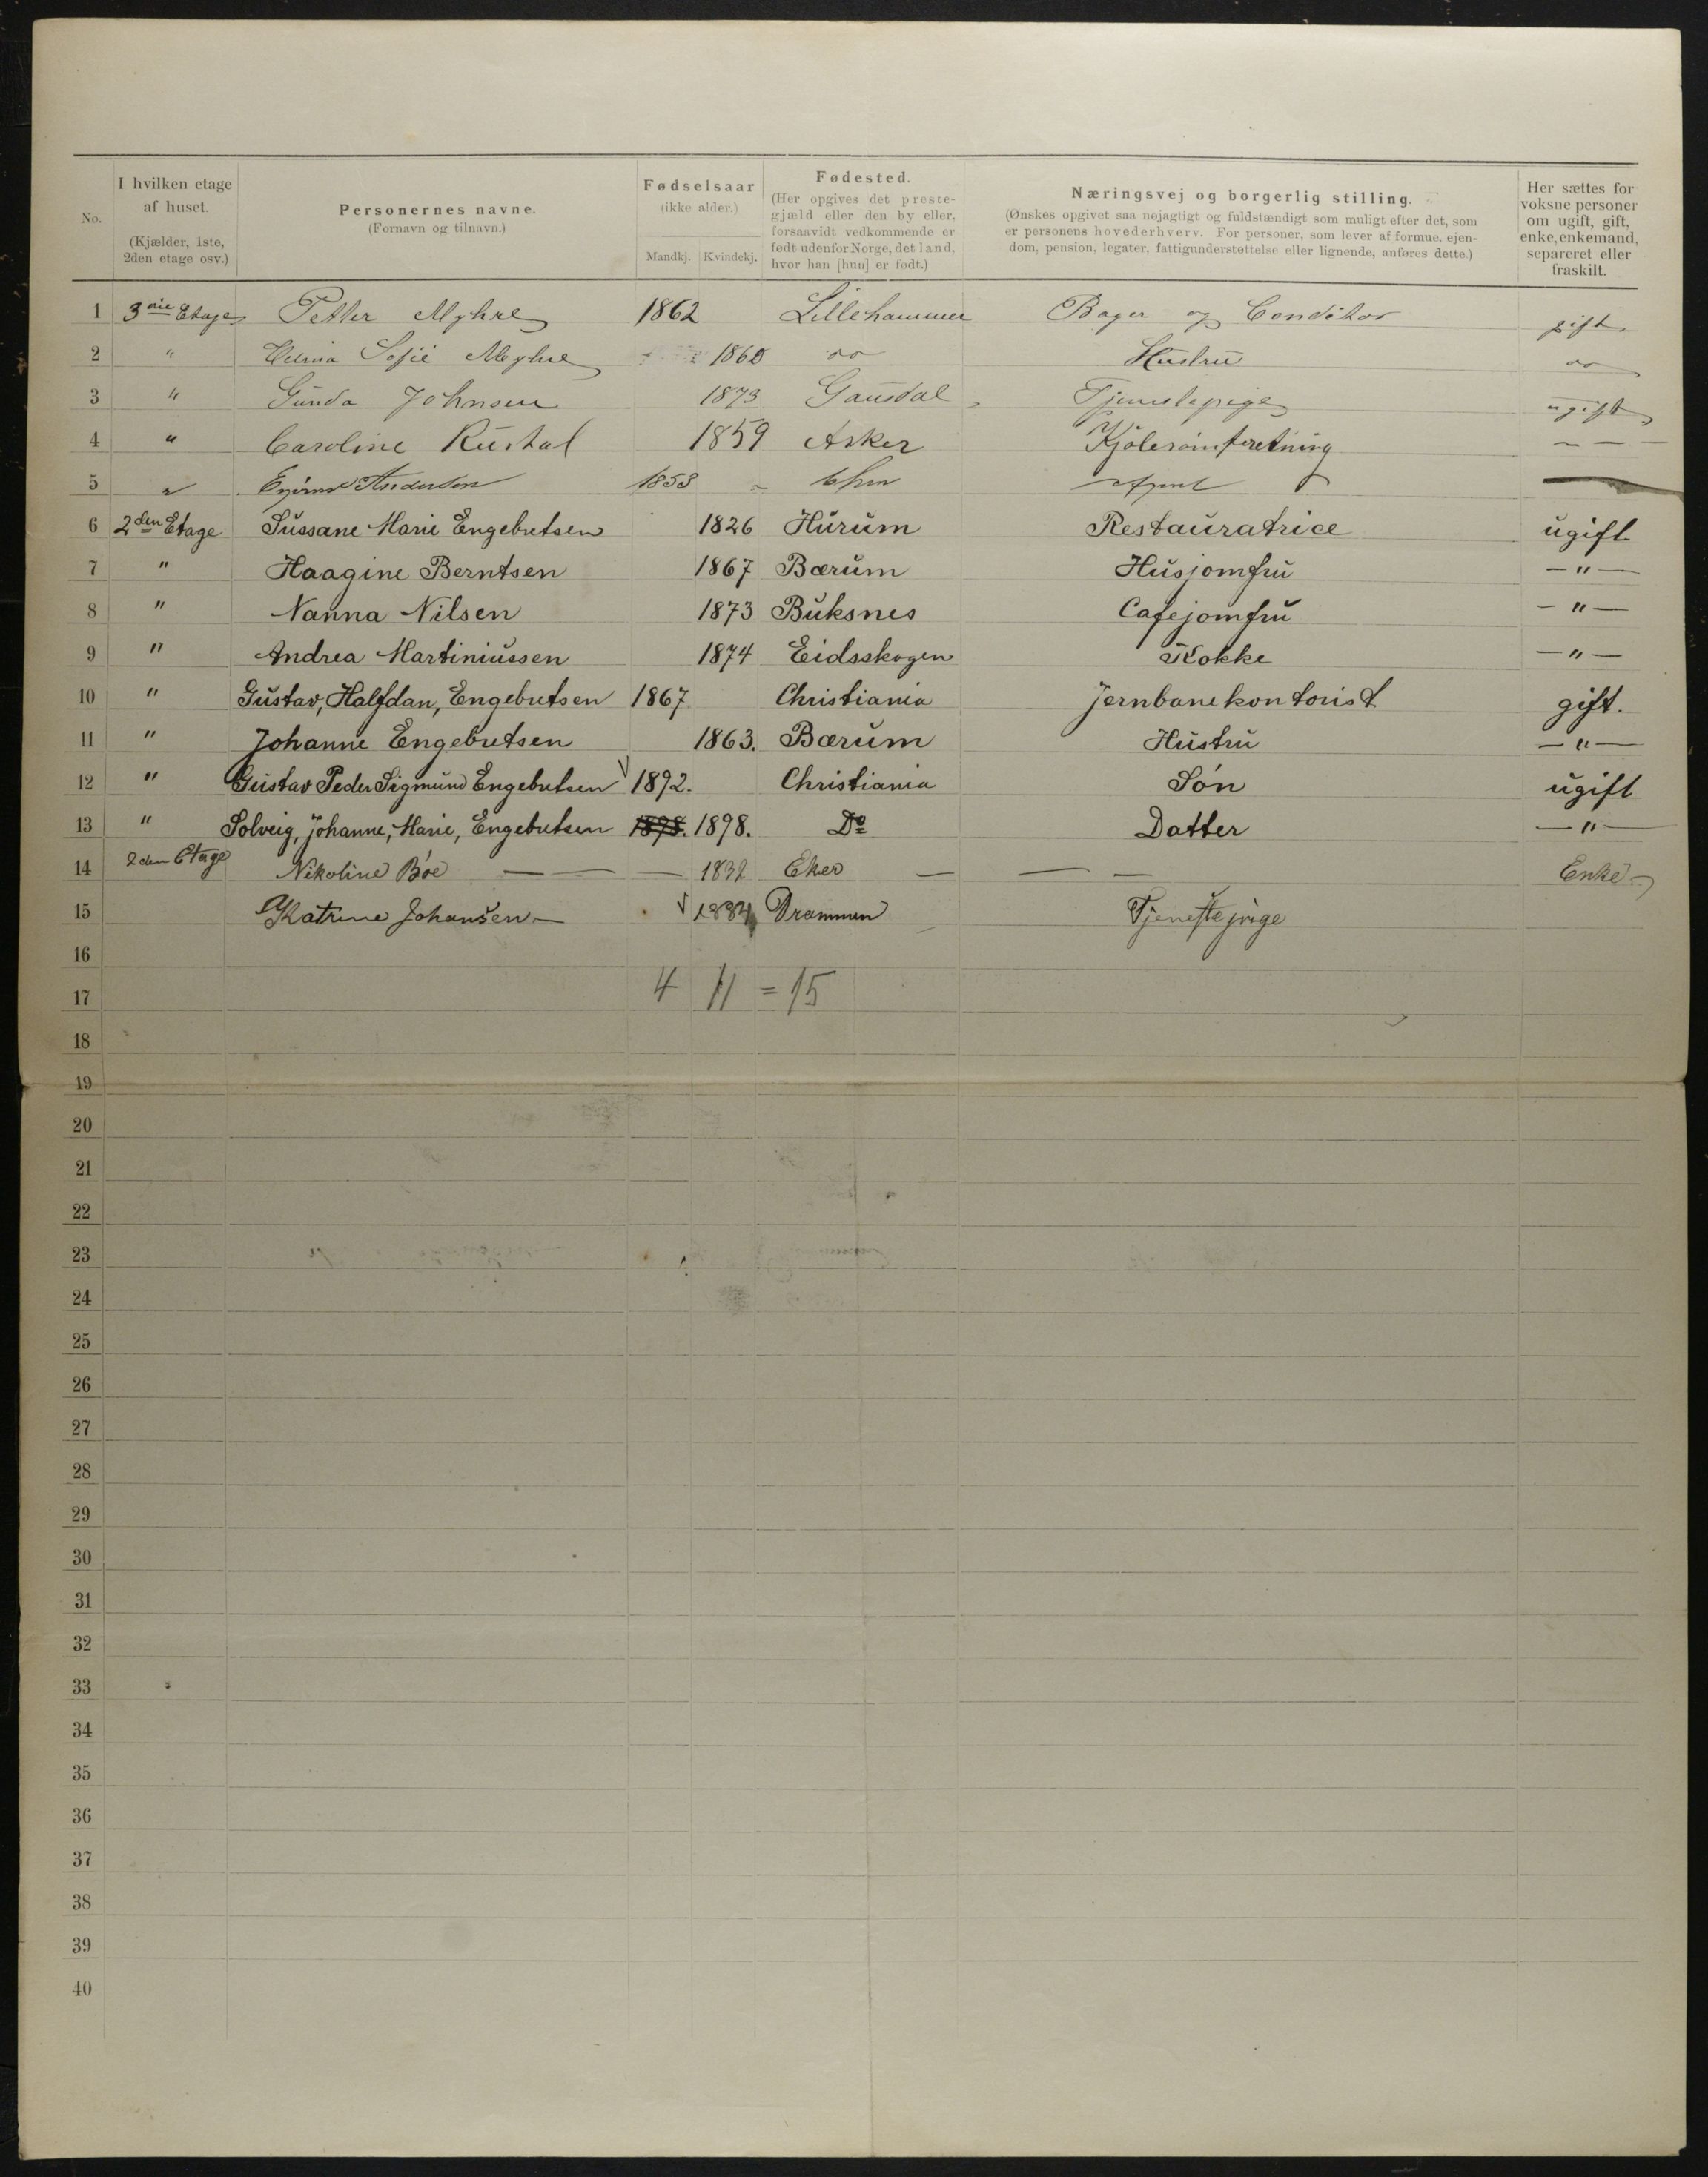 No. | I hvilken etage af huset. (Kjælder, 1ste, 2den etage osv.) | Personernes navne. (Fornavn og tilnavn.) | Fødselsaar (ikke alder.) Mandkj. Kvindekj. | Fødested. (Her opgives det prestegjæld eller den by eller, forsaavidt vedkommende er født udenfor Norge, det land, hvor han [hun] er født.) | Næringsvej og borgerlig stilling. (Ønskes opgivet saa nøjagtigt og fuldstændigt som muligt efter det, som er personens hovederhverv. For personer, som lever af formue, ejendom, pension, legater, fattigunderstøttelse eller lignende, anføres dette.) | Her sættes for voksne personer om ugift, gift, enke, enkemand, separeret eller fraskilt.
1 3die Etage Petter Myhre 1862 Lillehammer Bager og Conditor gift
2 " Sofie Myhre 1860 do Hustru do
3 " Gunda Johnsen 1873 Gausdal Tjenestepige ugift
4 " Caroline Rustad 1859 Asker — — —
5 " Andersen 1853 " Chra Agent
6 2den Etage Sussane Marie Engebretsen 1826 Hurum Restauratrice ugift
7 " Haagine Berntsen 1867 Bærum Husjomfru — " —
8 " Nanna Nilsen 1873 Buksnes Cafejomfru — " —
9 " Andrea Martiniussen 1874 Eidsskogen Kokke — " —
10 " Gustav, Halfdan, Engebretsen 1867 Christiania Jernbanekontorist gift.
11 " Johanne Engebretsen 1863. Bærum Hustru — " —
12 " Gustav Peder Sigmund Engebretsen √ 1892. Christiania Søn ugift
13 " Solveig, Johanne, Marie, Engebretsen 1898. 1898. Do Datter — " —
14 2den Etage Nikoline Bøe — — — 1832 Eker — — — Enke
15 Katrine Johansen — √ 1884 Drammen Tjenestepige
16
17 4 11 = 15
18
19
20
21
22
23
24
25
26
27
28
29
30
31
32
33
34
35
36
37
38
39
40